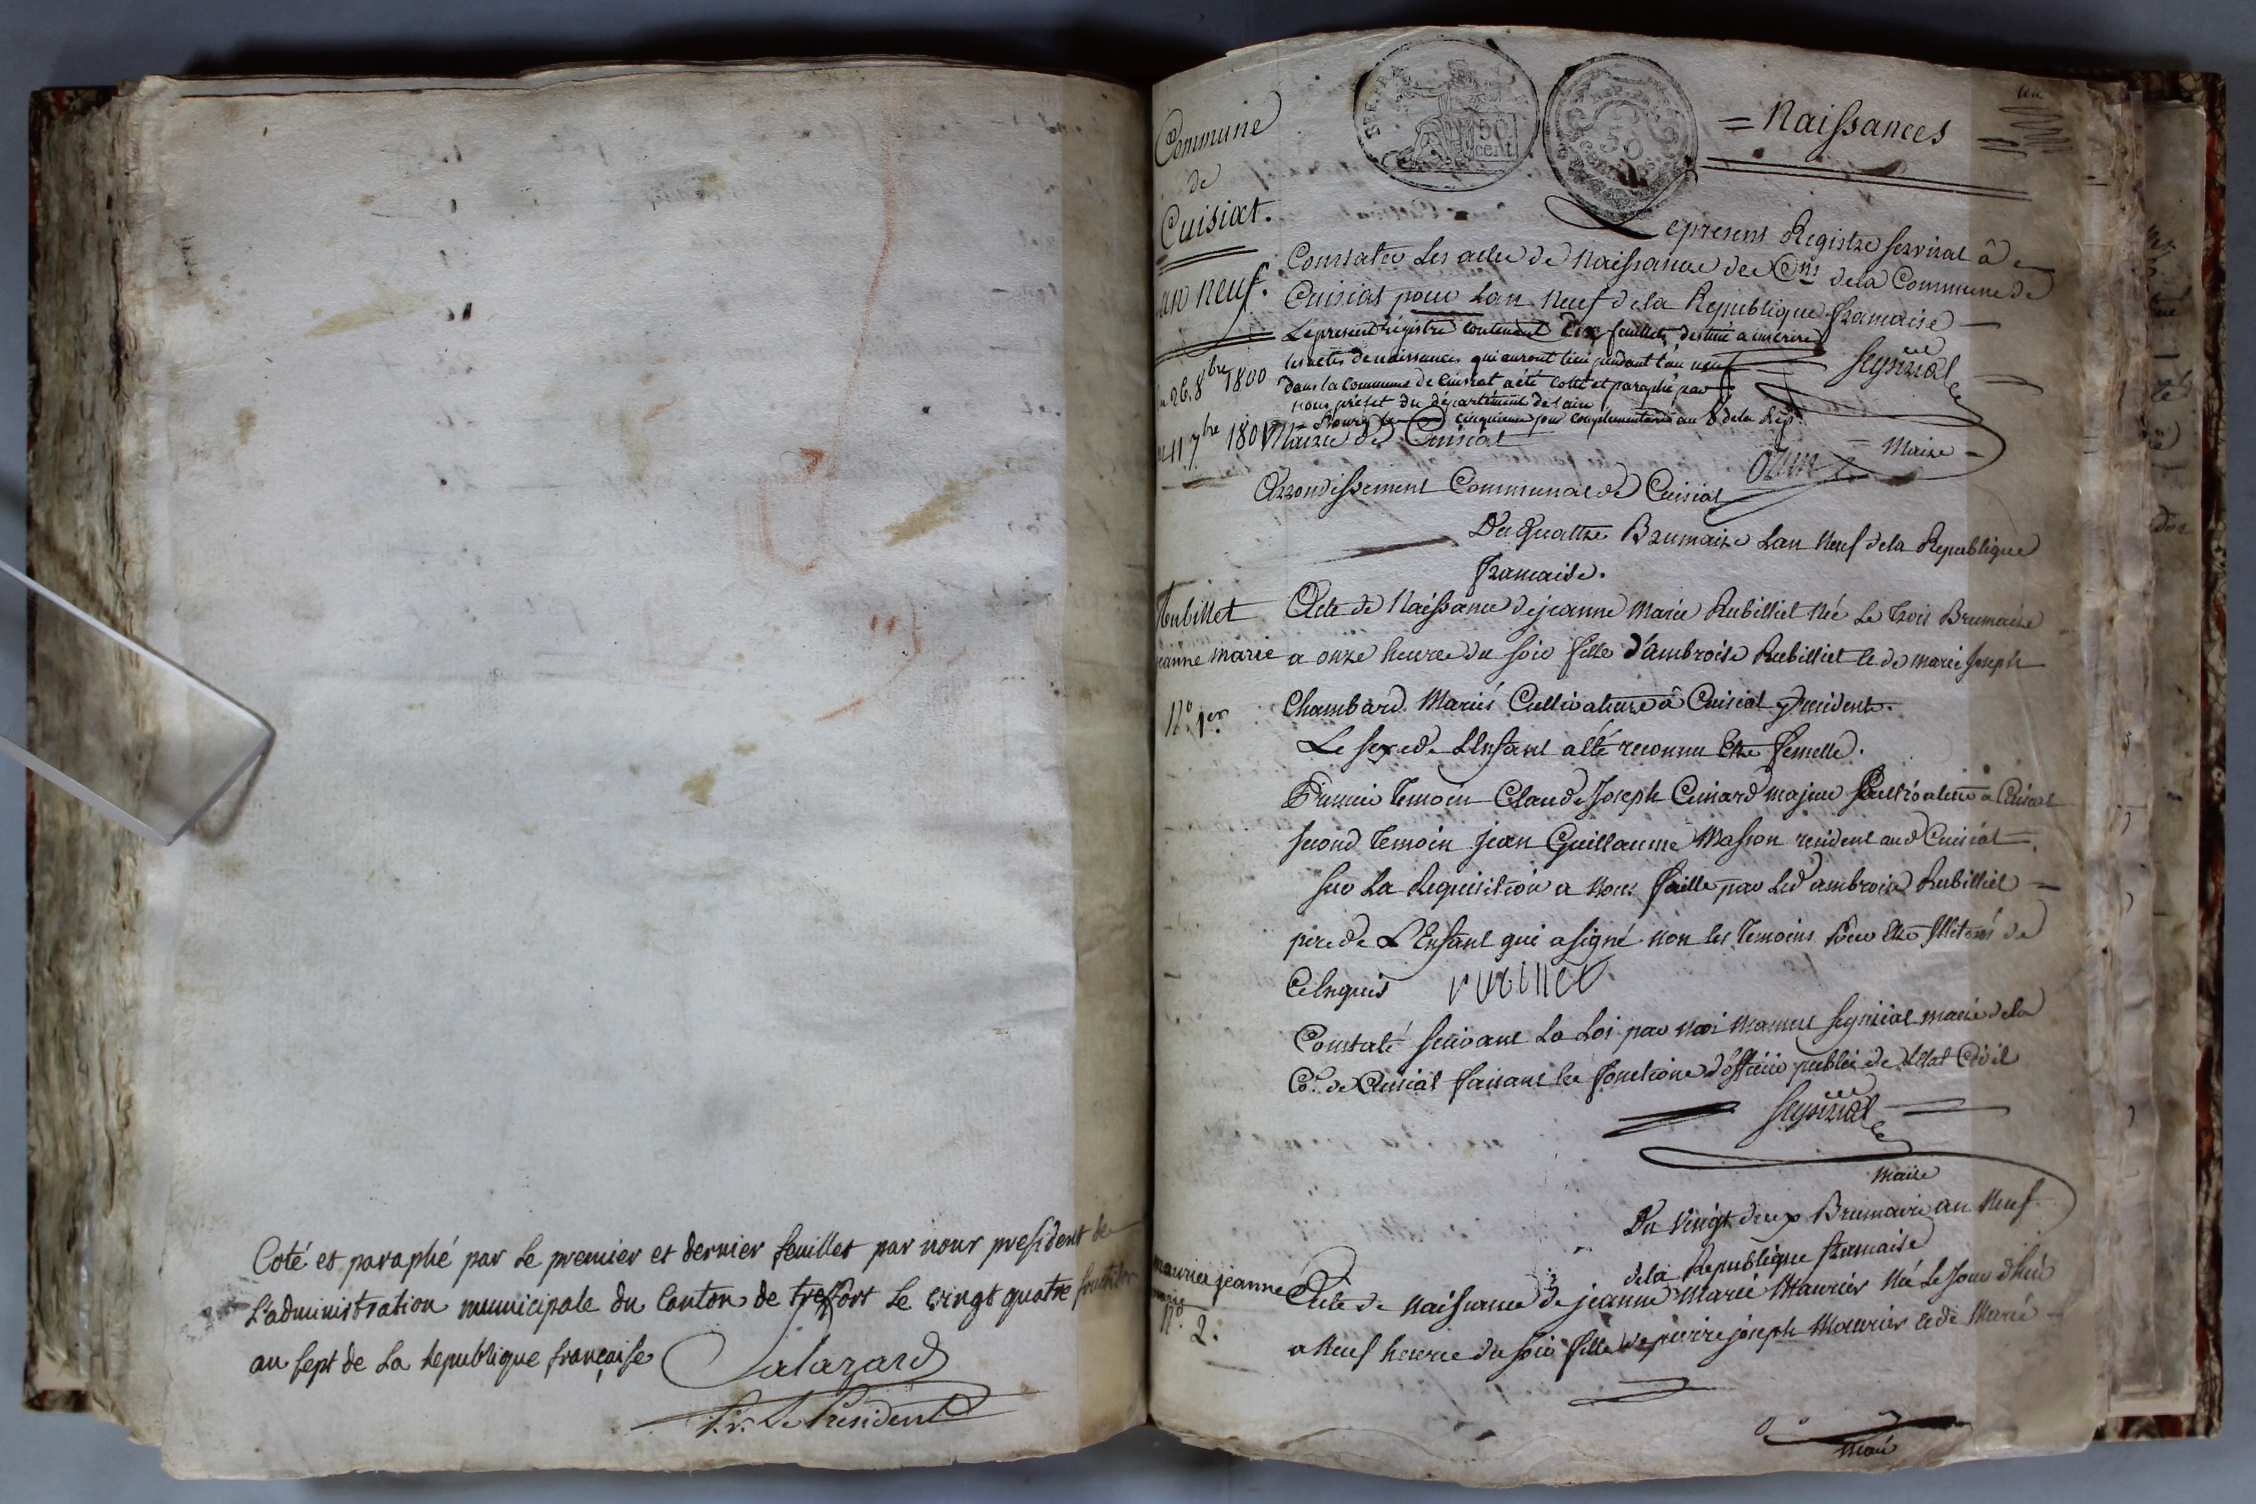 Coté et paraphé par le premier et dernier feuillet par nous president de
L'administration municipale du Canton de treffort le vingt quatre
an sept de La Republique française
Salazard
Le President
Commune
de
Cuisiat.
an neuf.
26 8bre 1800
11 7bre 1801
REP. FRA
50
cent
50
= Naissances
Le present Registre servira â
Constater Les actes de Naissance des Cns de la Commune de
Cuisiat pour Lan Neuf de la Republique francaise
Le present régistre contenant dix feuillets, destiné a inscrire
les actes de naissances qui auront lieu pendant l'an neuf
dans la Commune de Cuisiat a été cotté et paraphé par
nous préfet du département de l'ain
Bourg le cinquieme jour complementaire an 8 de la Rép.
Mairie de Cuisiat
Maire
Arrondissement Communal de Cuisiat
Du Quattre Brumaire Lan Neuf de la Republique
francaise.
Rubillet
jeanne marie
N.º 1.er
Acte de Naissance de jeanne Marie Rubilliet Née Le trois Brumaire
a onze heures du soir fille d'ambroise Rubilliet et de marie Joseph
Chambard Mariés Cultivateurs â Cuisiat y residents.
Le sexe de L'Enfant a été reconnu Etre femelle.
Premier temoin Claude Joseph Cuinard majeur Cultivateur a Cuisiat
second temoin jean Guillaume Masson resident aud Cuisiat
sur La Requisition a nous faitte par led ambroise Rubilliet
pere de L'Enfant qui a signé non les temoins pour Etre illiterés de
Ce Enquis rubillet
Constaté suivant La Loi par moi maire de la
Co.e de Cuisiat faisant les fonctions d'officier public de Letat Civil
maire
Du vingt deux Brumaire an Neuf
de la Republique francaise
maurier jeanne
marie
N.º 2.
Acte de Naissance de jeanne Marie Maurier Née Le Jour d'hier
a Neuf heures du soir fille de pierre joseph Maurier et de Marie